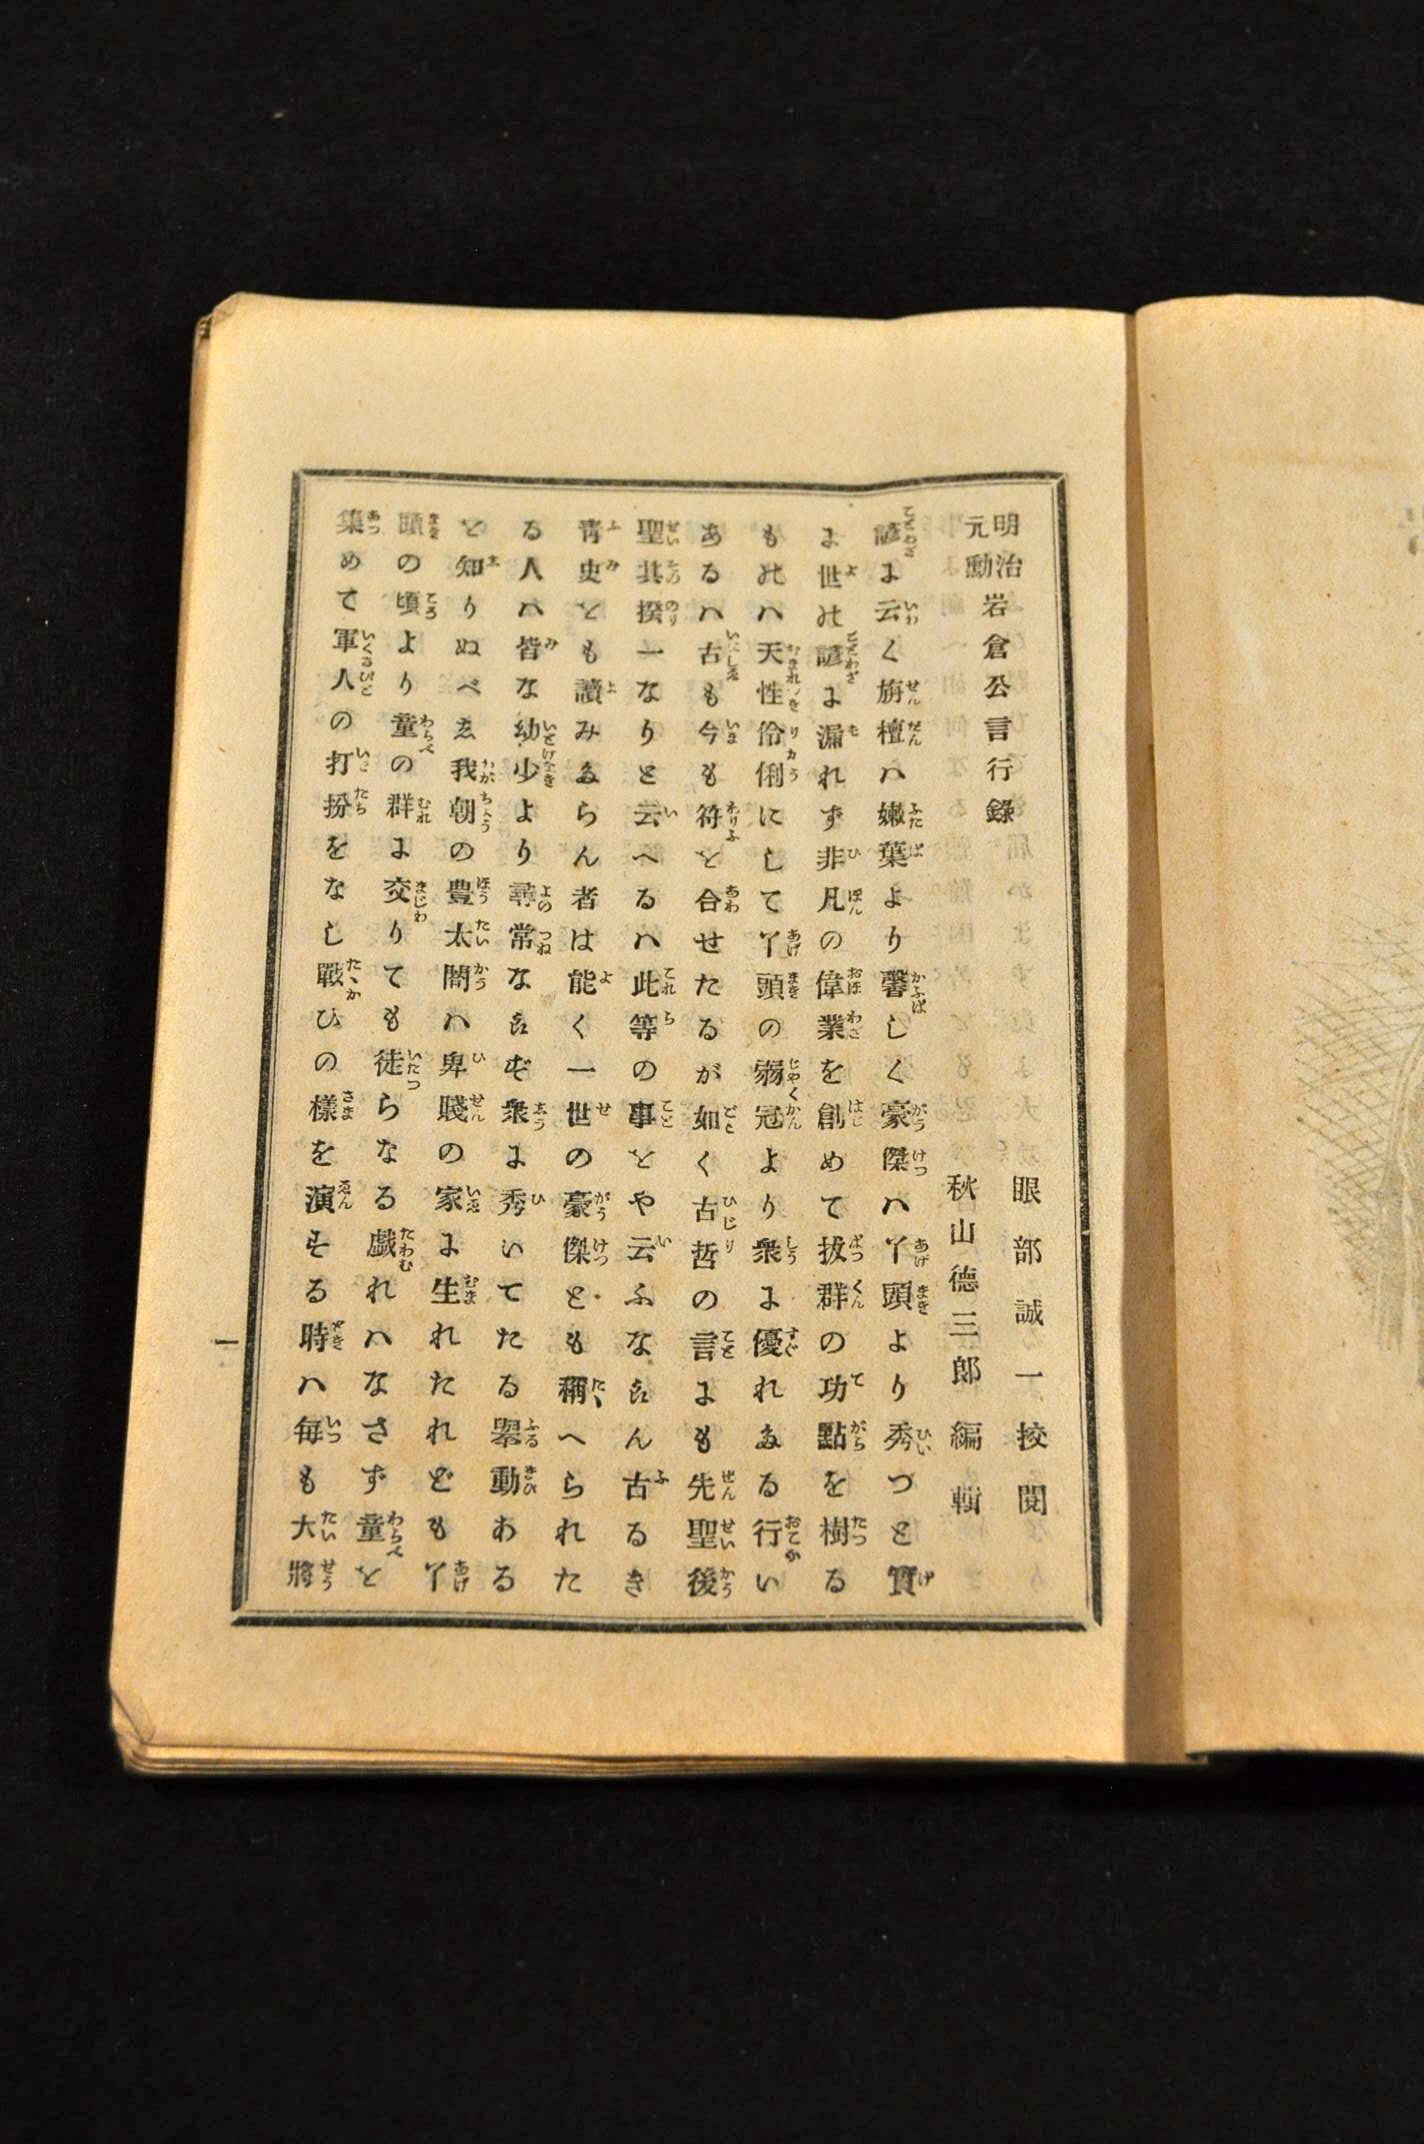 明治元勳岩倉公言行錄
眼部誠一挍閱
秋山德三郎編輯
諺に云く旃檀ハ嫩葉より馨しく豪傑ハ丫頭より秀づと實
に世の諺に漏れず非凡の偉業を創めて拔群の功點を樹る
ものハ天性伶俐にして丫頭の弱冠より衆に優れたる行い
あるハ古も今も符を合せたるが如く古哲の言にも先聖後
聖其揆一なりと云へるハ此等の事をや云ふならん古るき
靑史とも讀みたらん者は能く一世の豪傑とも稱へられた
る人ハ皆な幼少より尋常ならぞ衆に秀いてたる擧動ある
を知りぬべし我朝の豊太閤ハ卑賤の家に生れたれども丫
頭の頃より童の群に交りても徒らなる戯れハなさず童を
集めて軍人の打扮をなし戰ひの樣を演する時ハ毎も大將
一